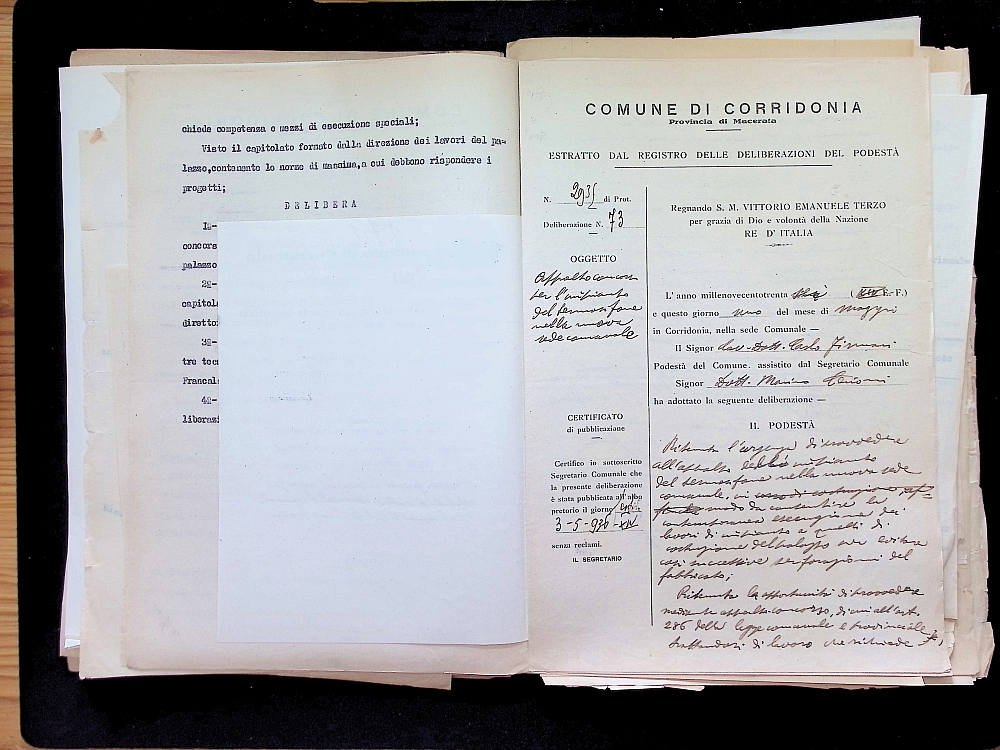 chiede competenza e mezzi di esecuzione speciali;
Visto il capitolato formato dalla direzione dei lavori del pa-
lazzo,contenente le norme di massima,a cui debbono rispondere i
progetti;
DELIBERA
1º-
concors
palazzo
2º-
capitola
diretto
3º-
tre tec
Francal
4º-
liberazi
COMUNE DI CORRIDONIA
Provincia di Macerata
ESTRATTO DAL REGISTRO DELLE DELIBERAZIONI DEL PODESTÀ
N. 2935 di Prot.
Deliberazione N. 73
OGGETTO
Appalto concorso
per l'impianto
del termosifone
nella nuova
sede comunale
CERTIFICATO
di pubblicazione
Certifico io sottoscritto
Segretario Comunale che
la presente deliberazione
è stata pubblicata all'albo
pretorio il giorno
3-5-936-XIV
senza reclami.
IL SEGRETARIO
Regnando S. M. VITTORIO EMANUELE TERZO
per grazia di Dio e volontà della Nazione
RE D' ITALIA
L' anno millenovecentotrenta sei ( XIV E.-F.)
e questo giorno uno del mese di maggio
in Corridonia, nella sede Comunale —
Il Signor Cav. Dott. Carlo Firmani
Podestà del Comune, assistito dal Segretario Comunale
Signor Dott. Marino
ha adottato la seguente deliberazione —
IL PODESTÀ
Ritenuta l'urgenza di provvedere
all'appalto dello impianto
del termosifone nella nuova sede
comunale, in corso di costruzione
modo da consentire la
contemporanea esecuzione dei
lavori di impianto a quelli di
costruzione del palazzo per evitare
così successive perforazioni del
fabbricato;
Ritenuta la opportunità di provvedere
mediante appalto concorso, di cui all'art.
286 della legge comunale e provinciale
trattandosi di lavoro che richiede